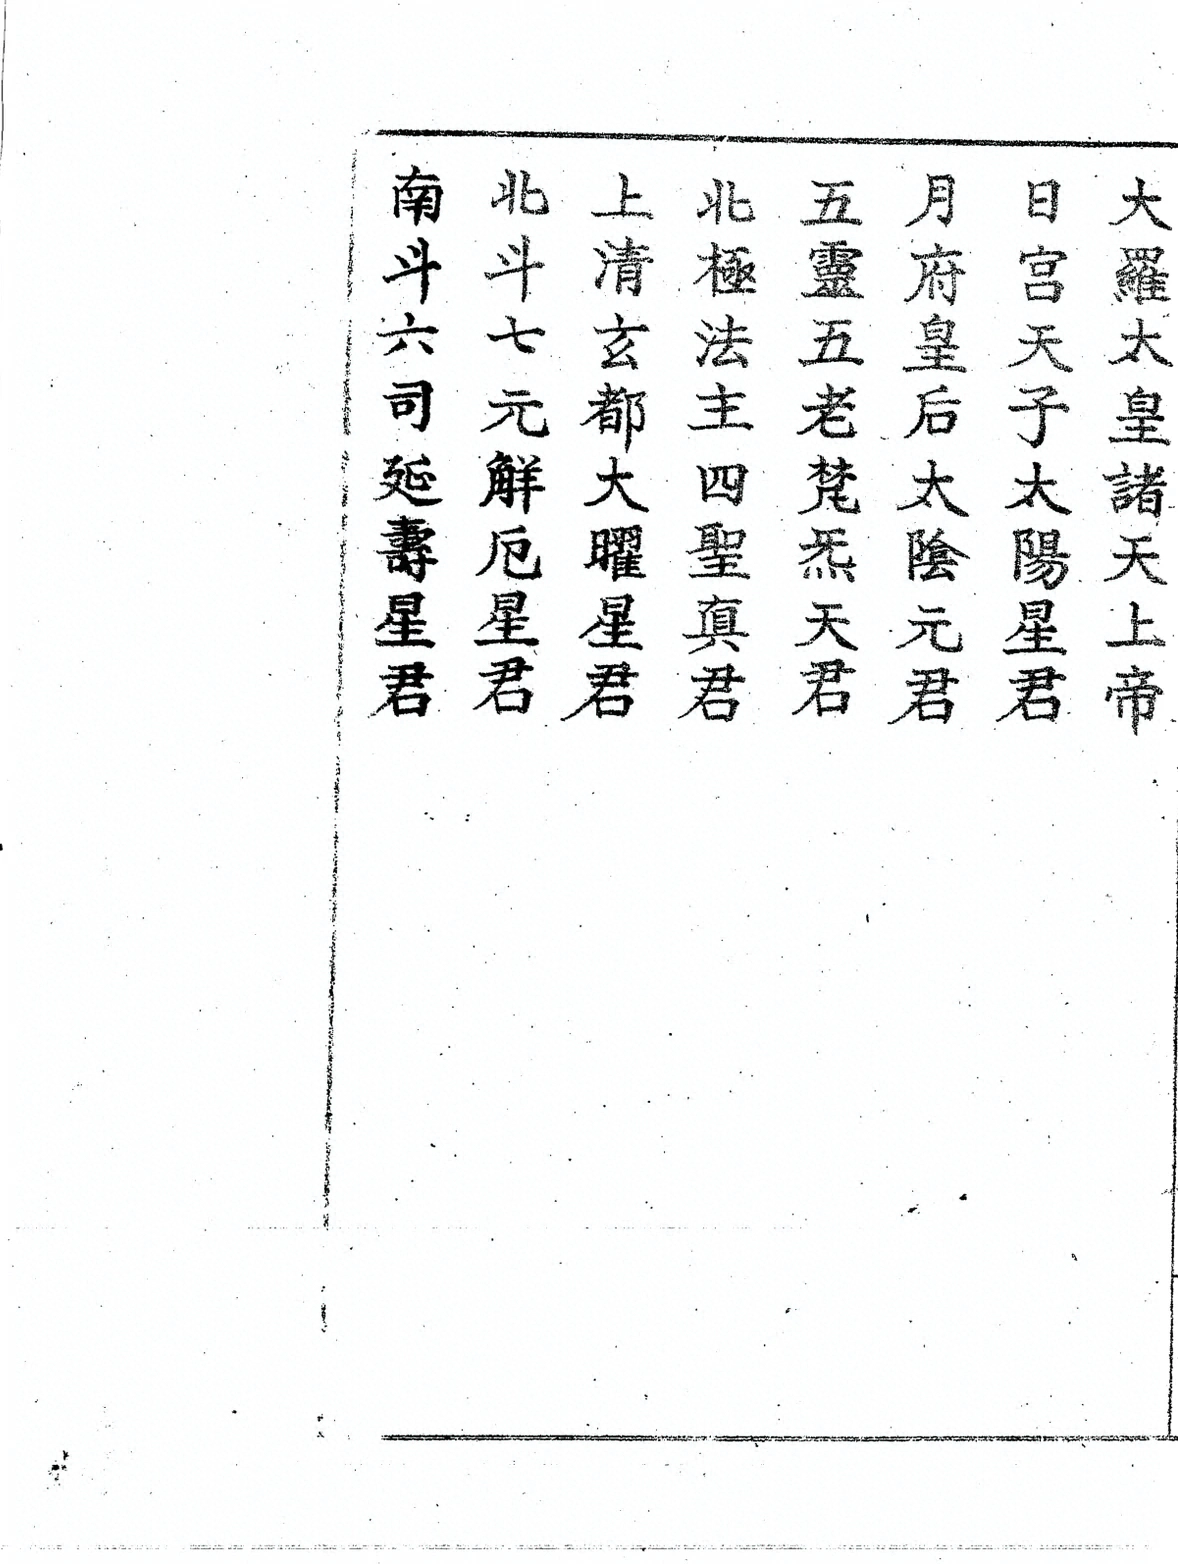 大羅太皇諸天上帝
日宫天子太陽星君
月府皇后太陰元君
五靈五老梵炁天君
北極法主四聖真君
上清玄都大曜星君
北斗七元解厄星君
南斗六司延壽星君